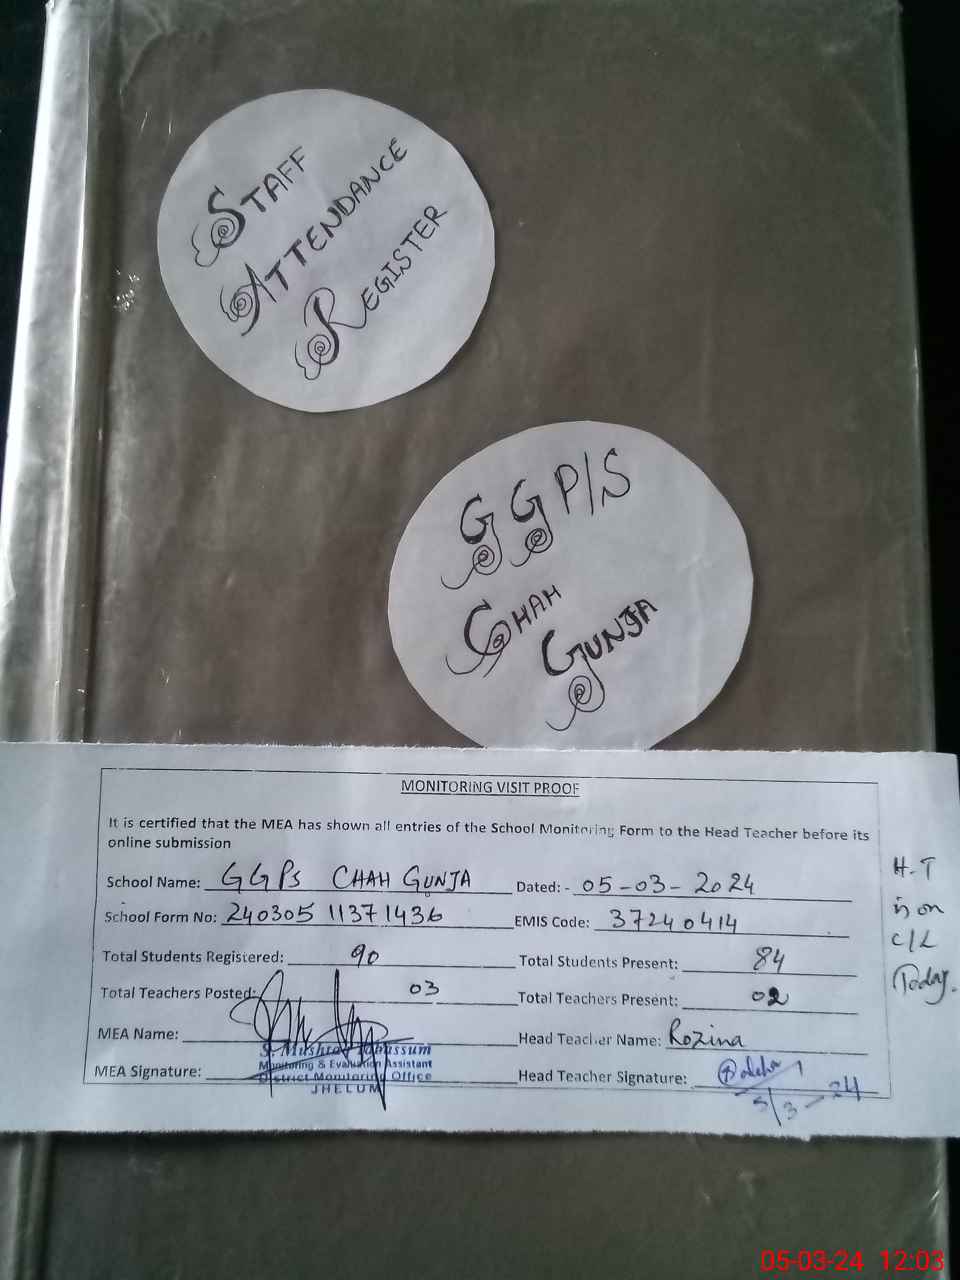 STAFF
ATTENDANCE
REGISTER
G G P/S
CHAH
GUNJA
MONITORING VISIT PROOF
It is certified that the MEA has shown all entries of the School Monitoring Form to the Head Teacher before its
online submission
School Name: GGPs CHAH GUNJA Dated: - 05-03-2024
School Form No: 240305 11371436 EMIS Code: 37240414
Total Students Registered: 90 Total Students Present: 84
Total Teachers Posted: 03 Total Teachers Present: 02
MEA Name: Head Teacher Name: Rozina
S. Tabassum
Monitoring & Evaluation Assistant
District Monitoring Office
JHELUM
MEA Signature: Head Teacher Signature:
5/3-24
H-T
is on
C/L
Today.
05-03-24 12:03